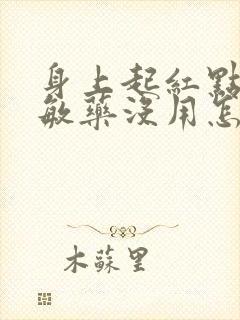 身上起紅點
敏藥沒用怎
木蘇里